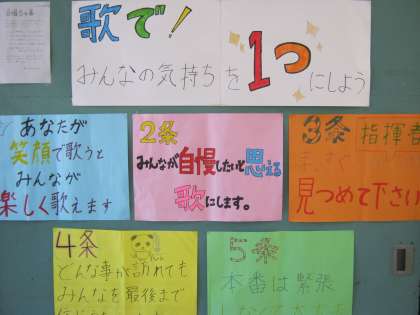 歌で!
みんなの気持ちを1つにしよう
あなたが
笑顔で歌うと
みんなが
楽しく歌えます
2条
みんなが自慢したいと思える
歌にします。
3条 指揮者
見つめて下さい
4条
どんな事が訪れても
みんなを最後まで
5条
本番は緊張